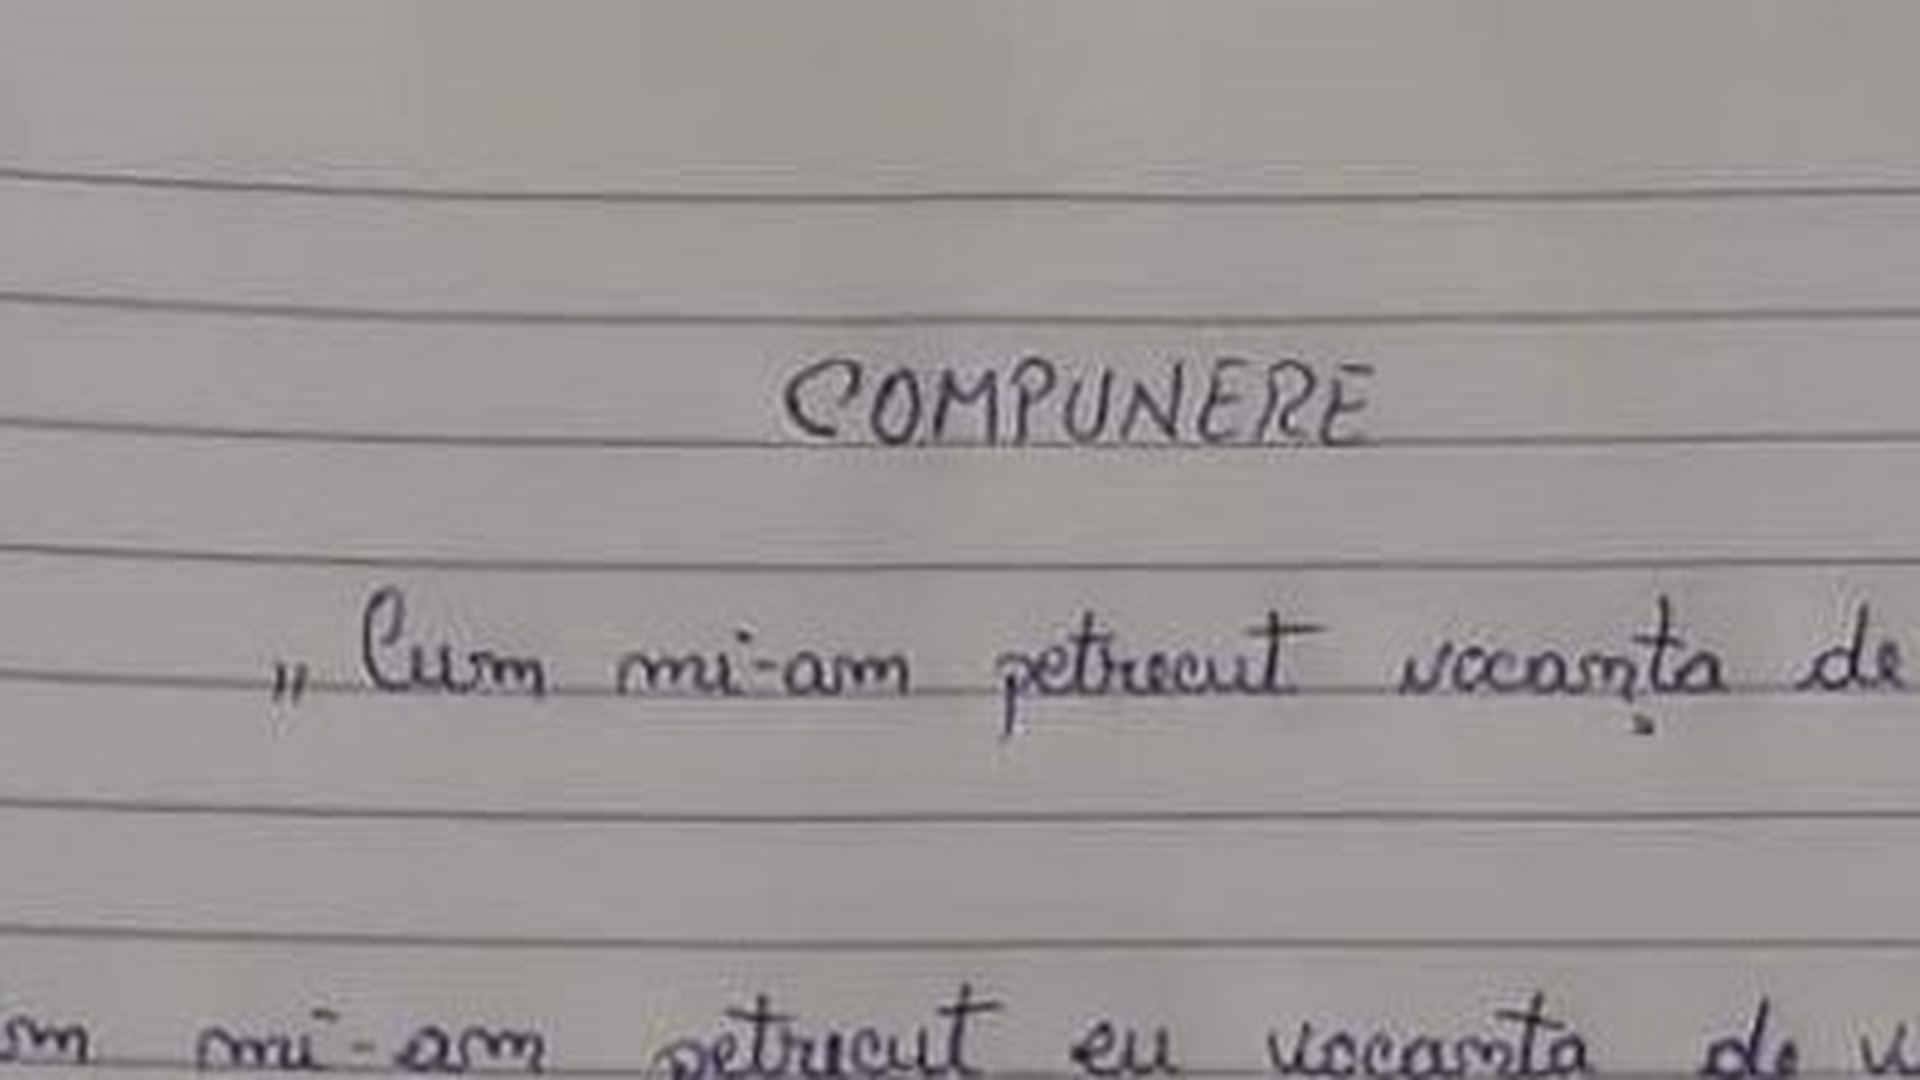 COMPUNERE
„Cum mi-am petrecut vacanța de
mi-am petrecut eu vacanta de